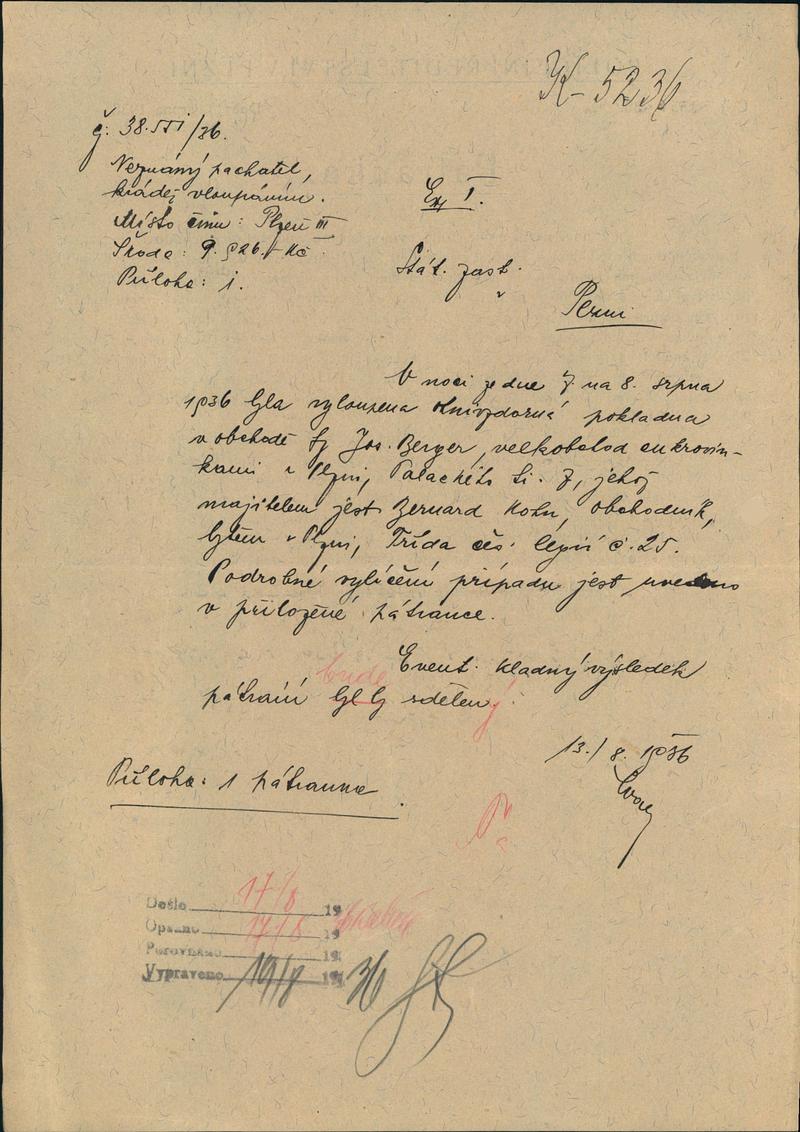 K-5236
č. 38.VII/36.
Neznámý pachatel,
krádež vloupáním.
Místo činu: Plzeň III
Škoda: 9.826.- Kč
Příloha: 1.
Ex I.
Stát. zast.
v
Plzni
V noci ze dne 7 na 8. srpna
1936 byla vyloupena ohnivzdorná pokladna
v obchodě fy Jos. Berger, velkoobchod cukrovin-
kami v Plzni, Palackého tř. 7, jehož
majitelem jest Bernard Kohn, obchodník,
bytem v Plzni, Třída čs. legií č. 25.
Podrobné vylíčení případu jest uvedeno
v přiložené pátrance.
Event. kladný výsledek
bude
pátrání byl by sdělen
13./8. 1936
Příloha: 1 pátranka
Došlo 17/8 19
Opsáno 17/8 19
Porovnáno 19
Vypraveno 19/8 1936